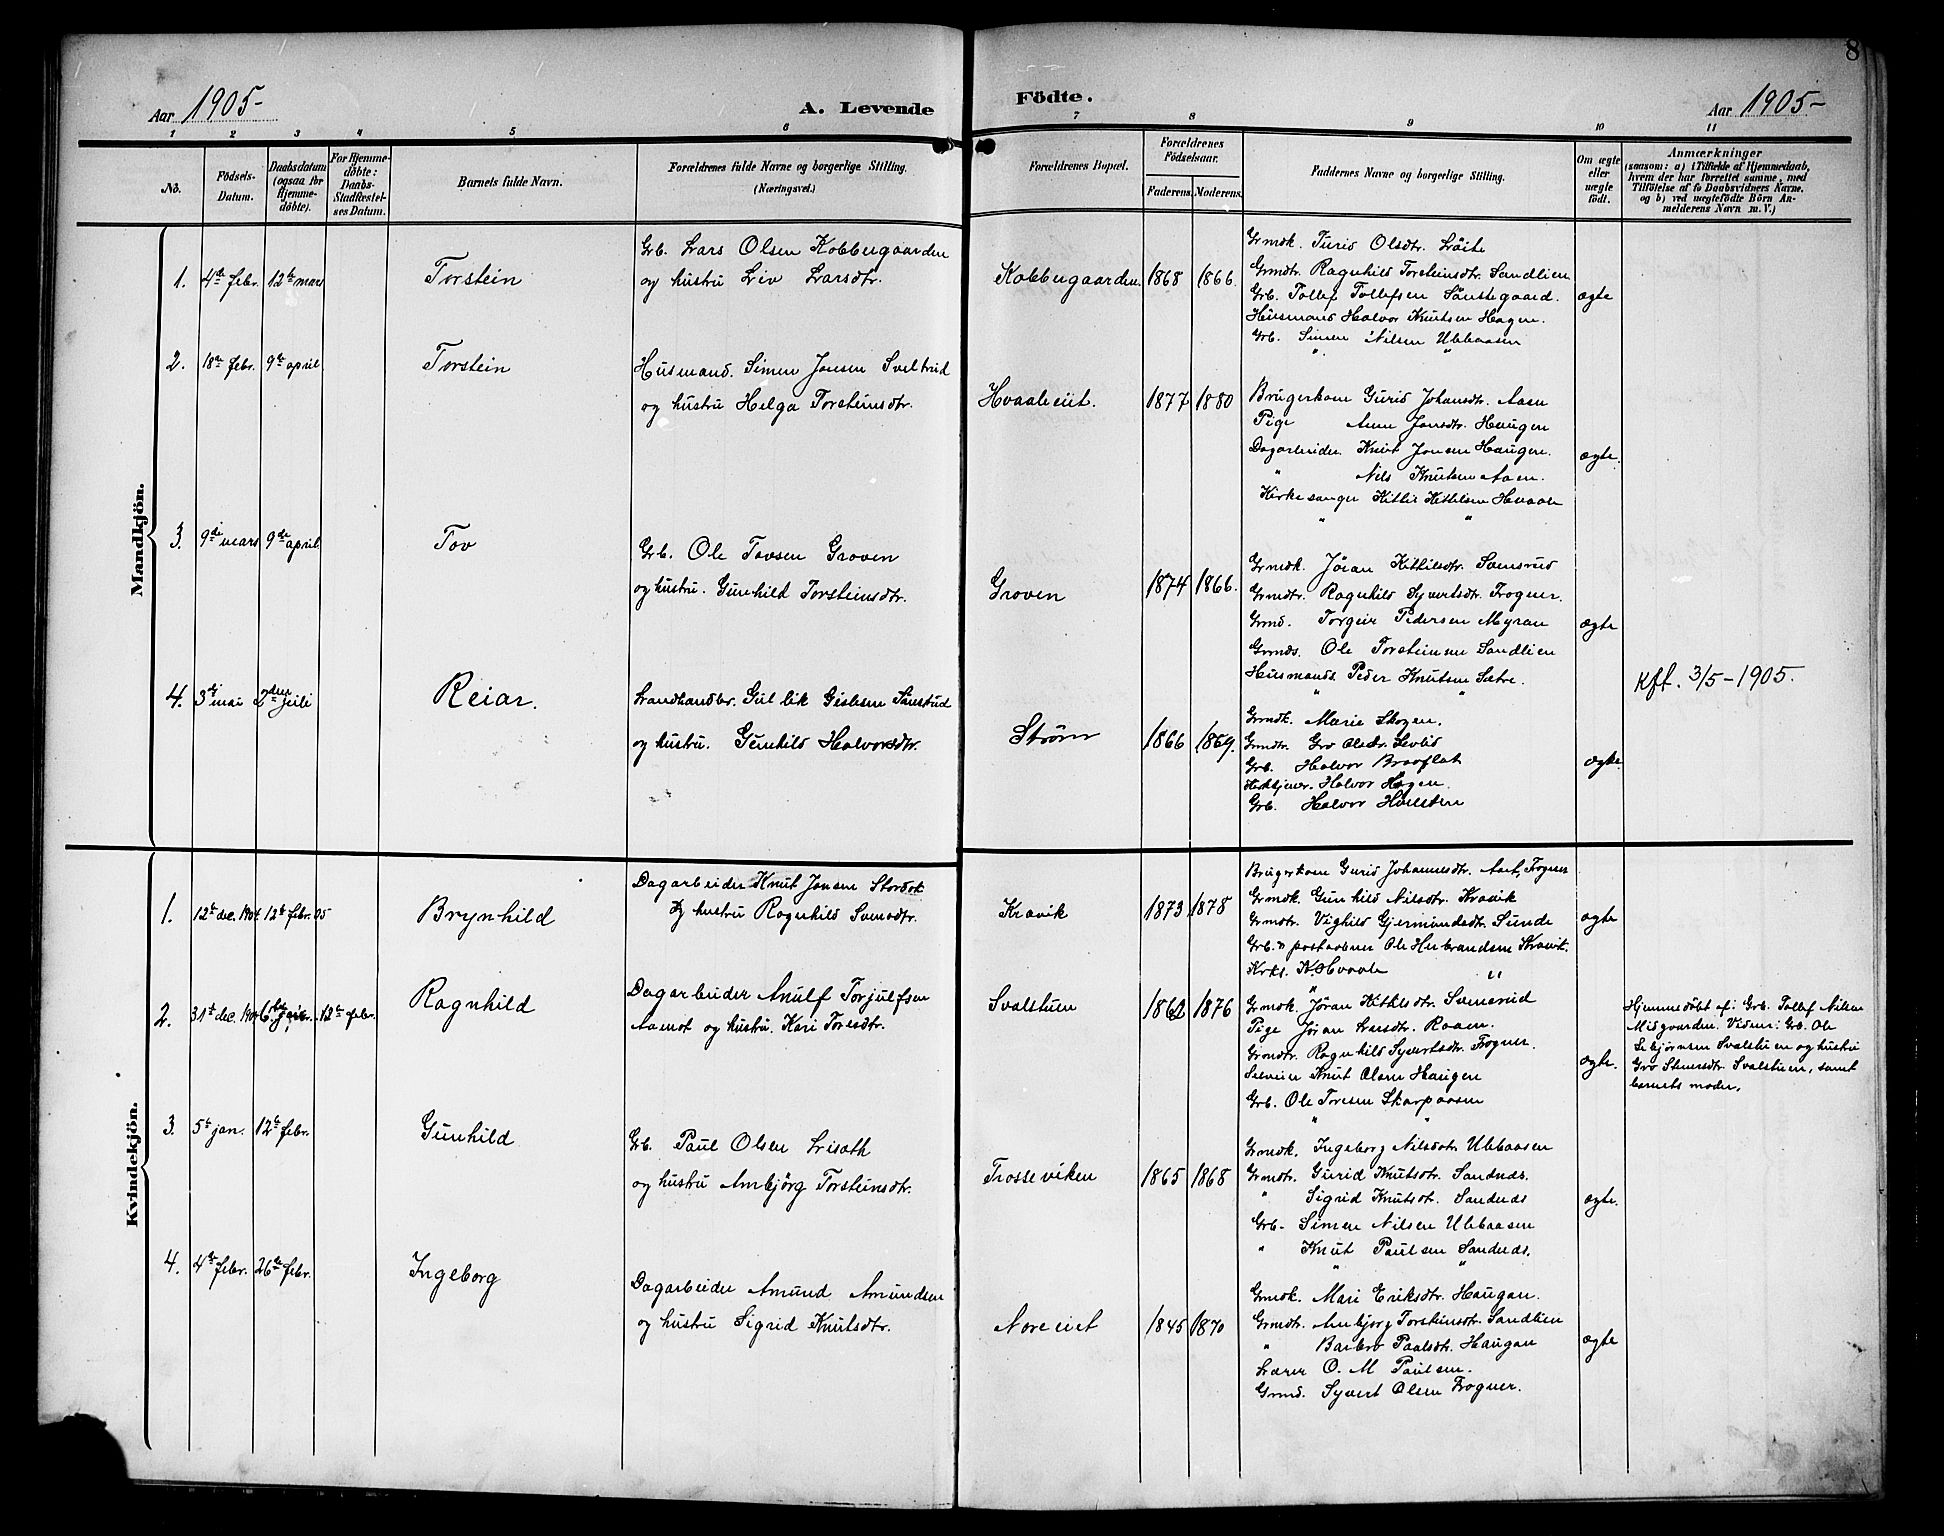 8
Aar 1905-
A. Levende
Födte.
Aar 1905-
1 2 3 4 5 6 7 8 9 10 11
No.
Födsels-
Datum.
Daabsdatum
(ogsaa for
Hjemme-
döbte).
For Hjemme-
döbte:
Daabs-
Stadfæstel-
ses Datum.
Barnets fulde Navn.
Forældrenes fulde Navne og borgerlige Stilling.
(Næringsvei.)
Forældrenes Bopæl.
Forældrenes
Födselsaar.
Faderens. Moderens.
Faddernes Navne og borgerlige Stilling.
Om ægte
eller
uægte
födt.
Anmærkninger
(saasom: a) i Tilfælde af Hjemmedaab,
hvem der har forrettet samme, med
Tilföielse af to Daabsvidners Navne.
og b) ved uægtefödte Börn An-
melderens Navn m. V.)
Mandkjön.
1. 4de febr. 12te mars
Torstein
Grb. Lars Olsen Kobbergaarden
og hustru Liv Larsdtr.
Kobbergaarden. 1868 1866.
Grmdk. Turid Olsdtr. Löite
Grmdtr. Ragnhild Torsteinsdtr. Sandlien
Grb. Tollef Tollefsen Sönstegaard.
Husmand Halvor Knutsen Hagen.
Grb. Simen Nilsen Ubbaasen
ægte
2. 18de febr. 9de april
Torstein
Husmand. Simen Jonsen Sveltrud
og hustru Helga Torsteinsdtr.
Hvaaleeiet. 1877 1880
Brugerkone Gurid Johansdtr. Aasen
Pige Anne Jonsdtr. Haugen
Dagarbeider Knut Jonsen Haugen.
" Nils Knutsen Aasen.
Kirkesanger Kittil Kittelsen Hvaale
ægte.
3. 9de mars 9de april.
Tov
Grb. Ole Tovsen Groven
og hustru. Gunhild Torsteinsdtr.
Groven 1874 1866.
Grmdk. Jöran Kittilsdtr. Svensrud
Grmdtr. Ragnhild Syvertsdtr. Frogner.
Grmd. Torgeir Pedersen Myran
Grmds. Ole Torsteinsen Sandlien
Husmands. Peder Knutsen Sætre.
ægte
4. 3de mai 2den juli
Reiar.
Landhandler. Gullik Gislesen Sönstrud
og hustru. Gunhild Halvorsdtr.
Ström 1866 1869.
Grmdk. Marie Skogen.
Grmdtr. Gro Olsdtr. Levlid
Grb. Halvor Braaflat
Kirketjener. Halvor Hagen.
Grb. Halvor Hvelsten
ægte.
Kft. 3/5-1905.
Kvindekjön.
1. 12te dec. 1904 12te febr. 05
Brynhild
Dagarbeider Knut Jonsen Stordok
og hustru Ragnhild Svensdtr.
Kravik 1873 1878
Brugerkone Gurid Johannesdtr. Aart, Frogner
Grmdk. Gunhild Nilsdtr. Kravik
Grmdtr. Vighild Gjermundsdtr. Sunde
Grb. & postaabner Ole Herbrandsen Kravik.
Krks. K. Hvaale "
ægte
2. 31te dec. 1904 6te jan. 12te febr.
Ragnhild
Dagarbeider Anulf Torjulfsen
Aamot og hustru. Kari Toresdtr.
Svalstuen 1862 1876
Grmdk. Jöran Kittilsdtr. Svensrud
Pige Jöran Larsdtr. Raaen.
Grmdtr. Ragnhild Syvertsdtr. Frogner.
Selveier Knut Olsen Haugen
Grb. Ole Toresen Skarpaasen
ægte.
Hjemmedöbt af: Grb. Tollef Nilsen
Midgaarden. Vidner: Grb. Ole
Lebjörnsen Svalstuen og hustru
Gro Steinarsdtr. Svalstuen, samt
barnets moder.
3. 5te jan. 12te febr.
Gunhild
Grb. Paul Olsen Lisath
og hustru Ambjörg Torsteinsdtr.
Trosseviken 1865 1868
Grmdk. Ingeborg Nilsdtr. Ubbaasen
Grmdtr. Gurid Knutsdtr. Sandnes.
" Sigrid Knutsdtr. Sandnes
Grb. Simen Nilsen Ubbaasen
" Knut Paulsen Sandnes.
ægte.
4. 4de febr. 26de febr.
Ingeborg
Dagarbeider Amund Amundsen
og hustru Sigrid Knutsdtr.
Noreeiet 1845 1870
Grmdk. Mari Eriksdtr. Haugan.
Grmdtr. Anbjörg Torsteinsdtr. Sandlien
" Barbro Paalsdtr. Haugan
Lærer O. M Paulsen.
Grmd. Syvert Olsen Frogner.
ægte